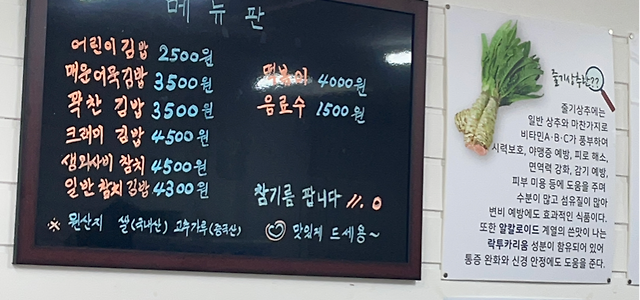 메뉴판
어린이김밥 2500원
매운어묵김밥 3500원
꽉찬 김밥 3500원
크래미 김밥 4500원
생와사비 참치 4500원
일반참치김밥 4300원
떡볶이 4000원
음료수 1500원
참기름 팝니다
※ 원산지 쌀(국내산) 고추가루(중국산)
맛있게 드세용~
줄기상추란??
줄기상추에는
일반 상추와 마찬가지로
비타민A·B·C가 풍부하여
시력보호, 야맹증 예방, 피로 해소,
면역력 강화, 감기 예방,
피부 미용 등에 도움을 주며
수분이 많고 섬유질이 많아
변비 예방에도 효과적인 식품이다.
또한 알칼로이드 계열의 쓴맛이 나는
락투카리움 성분이 함유되어 있어
통증 완화와 신경 안정에도 도움을 준다.